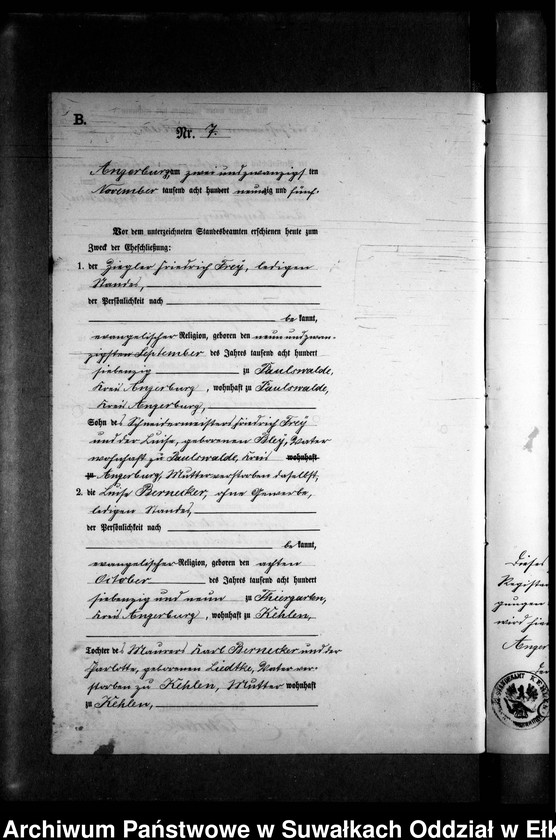 B.
Nr. 7.
Angerburg, am zwei und zwanzigsten
November tausend acht hundert neunzig und fünf.
Vor dem unterzeichneten Standesbeamten erschienen heute zum
Zweck der Eheschließung:
1. der Ziegler Friedrich Frey, ledigen
Standes,
der Persönlichkeit nach
be kannt,
evangelischer Religion, geboren den neun und zwan-
zigsten September des Jahres tausend acht hundert
siebenzig zu Paulswalde,
Kreis Angerburg, wohnhaft zu Paulswalde,
Kreis Angerburg,
Sohn des Schneidermeisters Friedrich Frey
und der Luise, geborenen Bley, Vater
wohnhaft zu Paulswalde, Kreis wohnhaft
zu Angerburg, Mutter verstorben daselbst,
2. die Luise Bernecker, ohne Gewerbe,
ledigen Standes,
der Persönlichkeit nach
be kannt,
evangelischer Religion, geboren den achten
October des Jahres tausend acht hundert
siebenzig und neun zu Thiergarten,
Kreis Angerburg, wohnhaft zu Kehlen,
Tochter des Maurers Karl Bernecker und der
Charlotte, geborenen Liedtke, Vater ver-
storben zu Kehlen, Mutter wohnhaft
zu Kehlen,
Dieses
Register
wird hie
Anger
Archiwum Państwowe w Suwałkach Oddział w Ełk